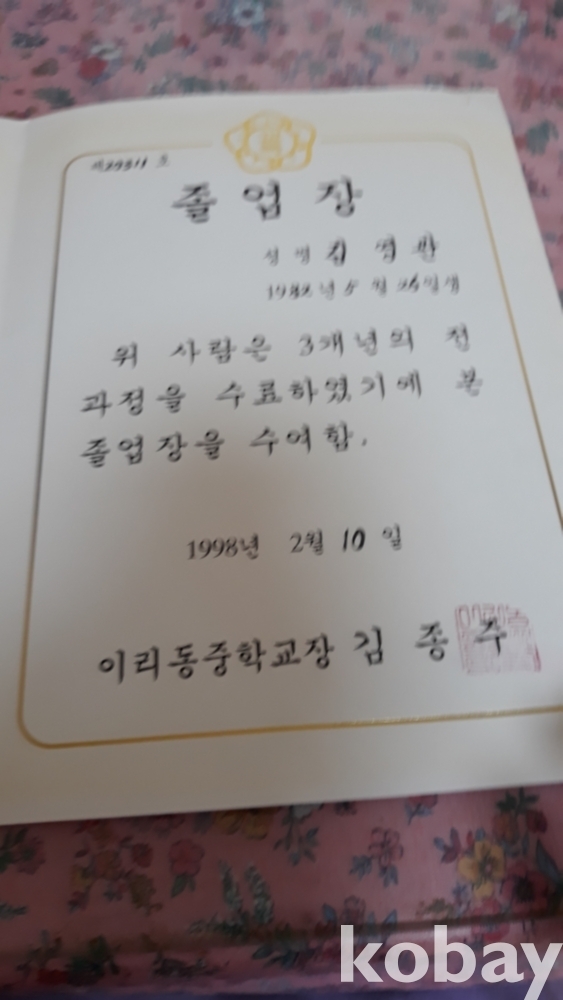 졸업장
성명 김
1982년 5월 26일생
위 사람은 3개년의 전
과정을 수료하였기에 본
졸업장을 수여함.
1998년 2월 10일
이리동중학교장 김종주
kobay